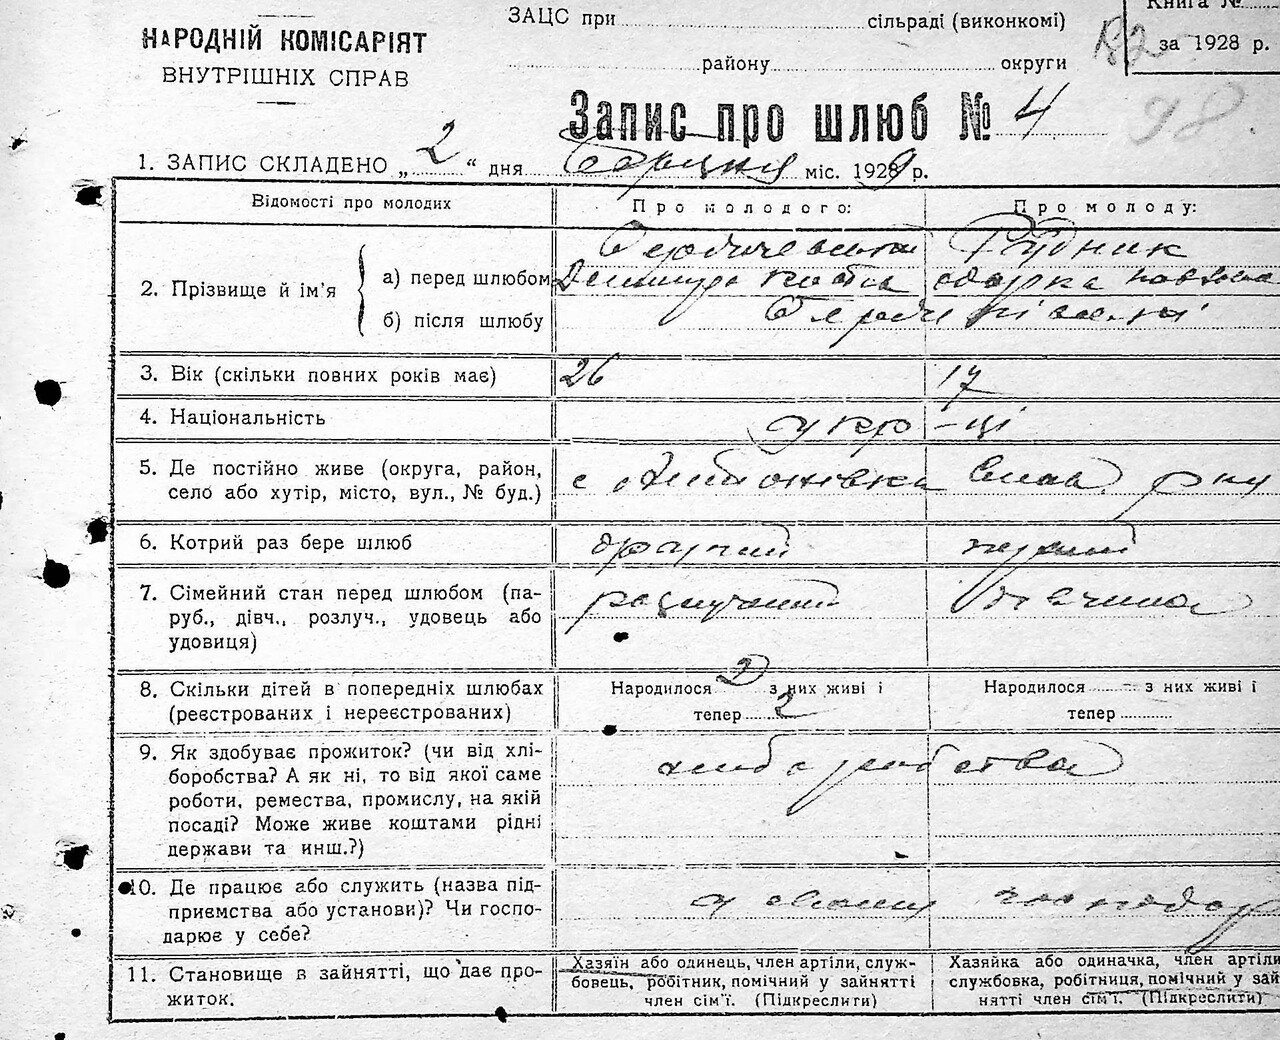 НАРОДНІЙ КОМІСАРІЯТ
ВНУТРІШНІХ СПРАВ
ЗАЦС при сільраді (виконкомі)
району округи
Книга №
за 1928 р.
82
98
Запис про шлюб № 4
1. ЗАПИС СКЛАДЕНО „ 2 “ дня міс. 1929 р.
Відомості про молодих
Про молодого:
Про молоду:
2. Прізвище й ім'я
а) перед шлюбом
Рудник
б) після шлюбу
3. Вік (скільки повних років має)
26
17
4. Національність
укр-ці
5. Де постійно живе (округа, район,
село або хутір, місто, вул., № буд.)
с Антонівка р ну
6. Котрий раз бере шлюб
другий
перший
7. Сімейний стан перед шлюбом (па-
руб., дівч., розлуч., удовець або
удовиця)
розлучений
дівчина
8. Скільки дітей в попередніх шлюбах
(реєстрованих і нереєстрованих)
Народилося 2 з них живі і
тепер 2
Народилося – з них живі і
тепер
9. Як здобуває прожиток? (чи від хлі-
боробства? А як ні, то від якої саме
роботи, ремества, промислу, на якій
посаді? Може живе коштами рідні
держави та инш.?)
хліборобства
10. Де працює або служить (назва під-
приємства або установи)? Чи госпо-
дарює у себе?
у своїм господар
11. Становище в зайнятті, що дає про-
житок.
Хазяїн або одинець, член артіли, служ-
бовець, робітник, помічний у зайнятті
член сім'ї. (Підкреслити)
Хазяйка або одиначка, член артіли
службовка, робітниця, помічний у зай
нятті член сім'ї. (Підкреслити)